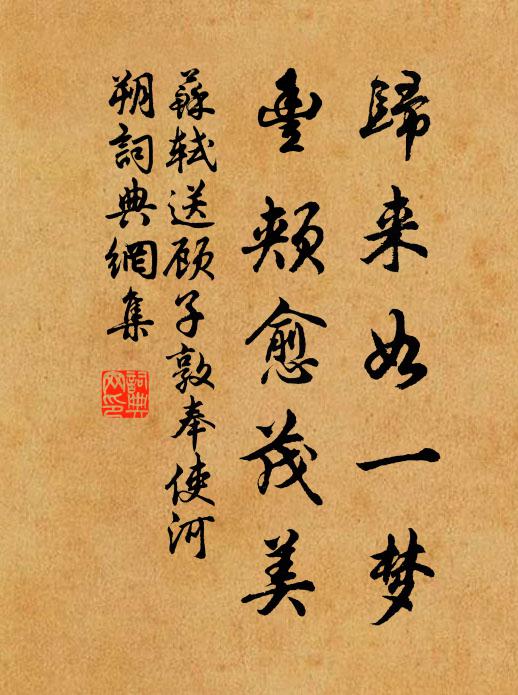 歸来如一梦
豊頰愈茂美
蘇轼送顾子敦奉使河
朔詞典網集
詞典
网印